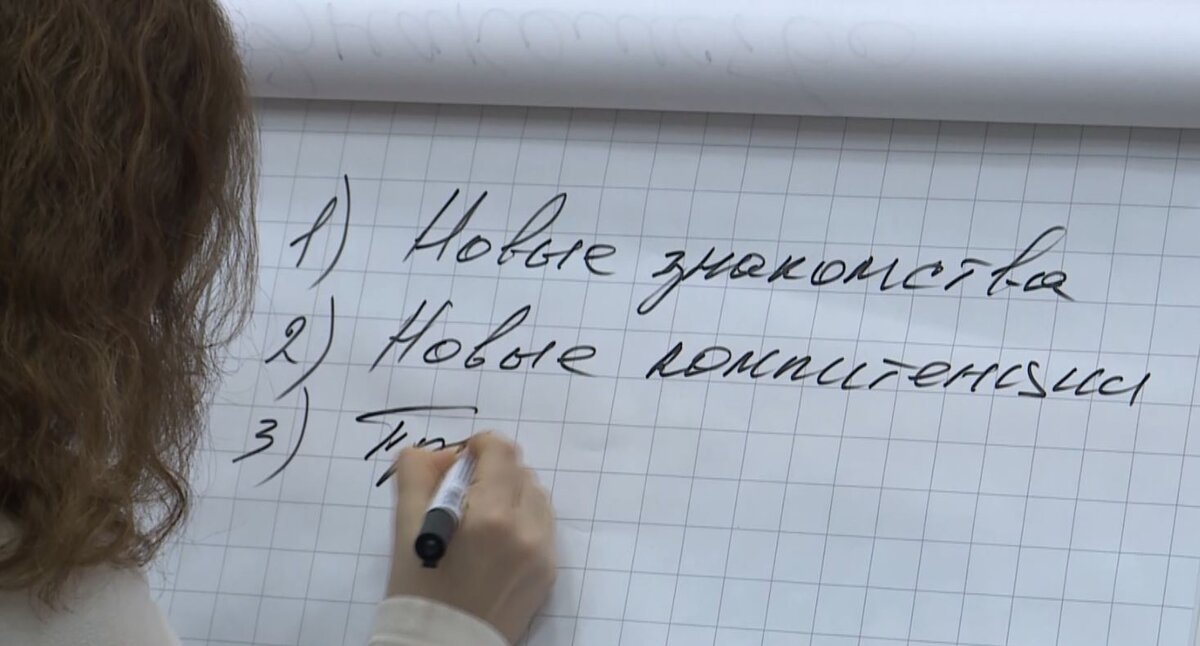 1) Новые знакомства
2) Новые компитенции
3) Пр